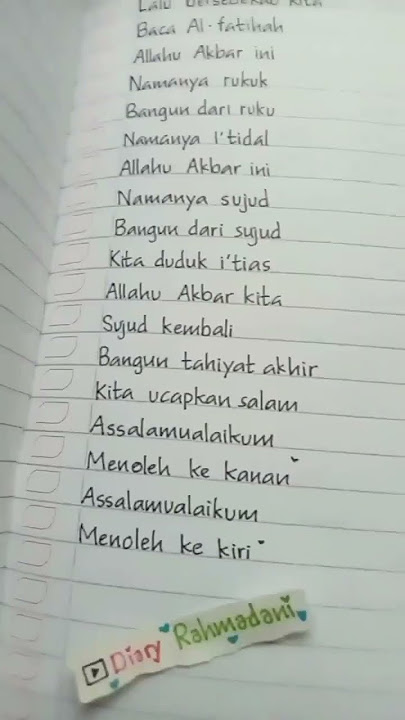 Lalu bersedekap kita
Baca Al-fatihah
Allahu Akbar ini
Namanya rukuk
Bangun dari ruku
Namanya I'tidal
Allahu Akbar ini
Namanya sujud
Bangun dari sujud
Kita duduk i'tias
Allahu Akbar kita
Sujud kembali
Bangun tahiyat akhir
Kita ucapkan salam
Assalamualaikum
Menoleh ke kanan
Assalamualaikum
Menoleh ke kiri
Diary Rahmadani